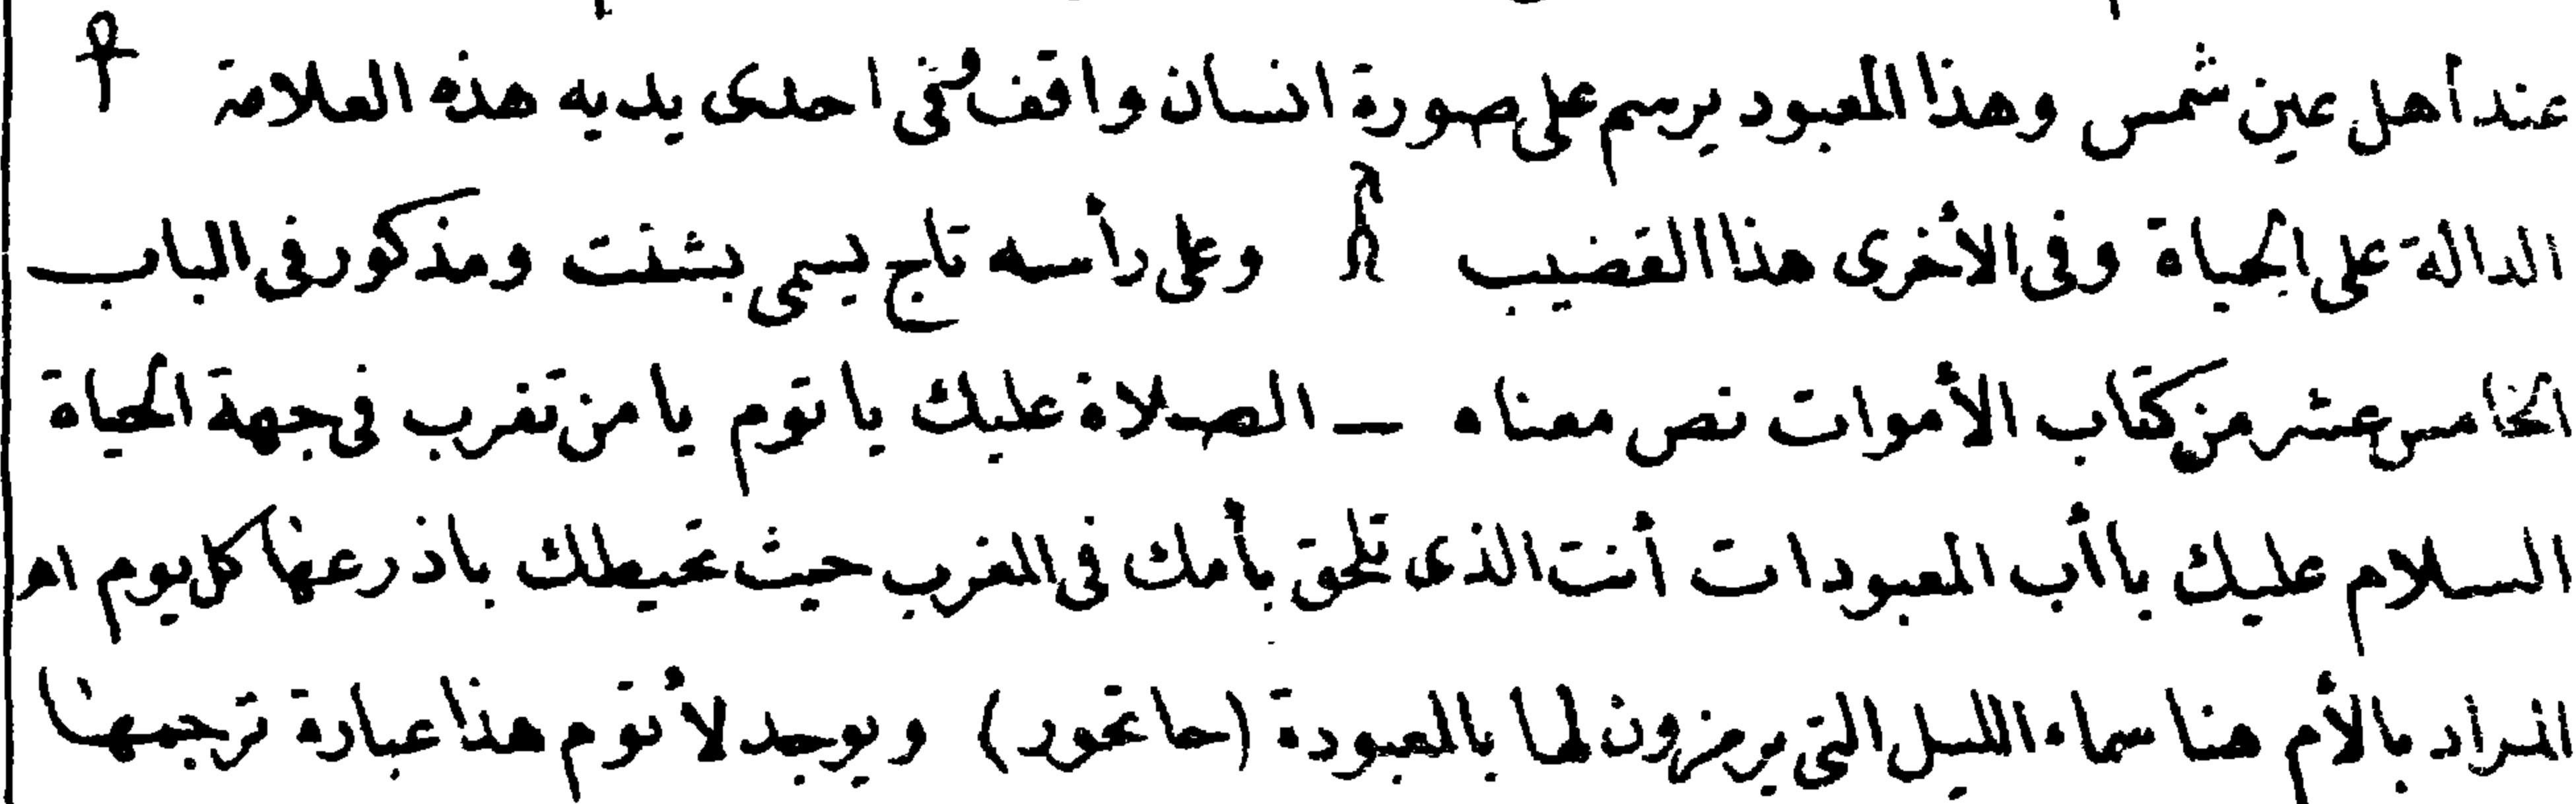 عند أهل عين شمس وهذا المعبود يرسم على صورة انسان واقف وفى احدى يديه هذه العلامة ☥
الدالة على الحياة وفى الأخرى هذا القضيب 𓌀 وعلى رأسه تاج يسمى بشنت ومذكور فى الباب
الخامس عشر من كتاب الأموات نص معناه ــ الصلاة عليك يا توم يا من تغرب فى جهة الحياة
السلام عليك يا أب المعبودات أنت الذى تلحق بأمك فى المغرب حيث تحيطك باذرعها كل يوم اهـ
المراد بالأم هنا سماء الليل التى يرمزون لها بالمعبودة (حاتحور) ويوجد لأتوم هذا عبارة ترجمها